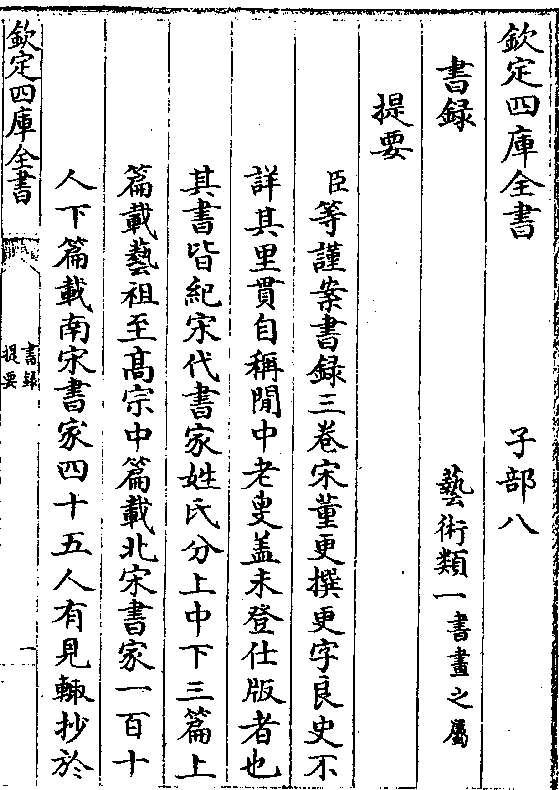 欽定四庫全書　子部八
書録　藝術類一書畫之屬
提要
臣等謹案書録三卷宋董更撰更字良史不
詳其里貫自稱閒中老叟盖未登仕版者也
其書皆紀宋代書家姓氏分上中下三篇上
篇載藝祖至髙宗中篇載北宋書家一百十
人下篇載南宋書家四十五人有見輙抄於
欽定四庫全書
書録
提要
一